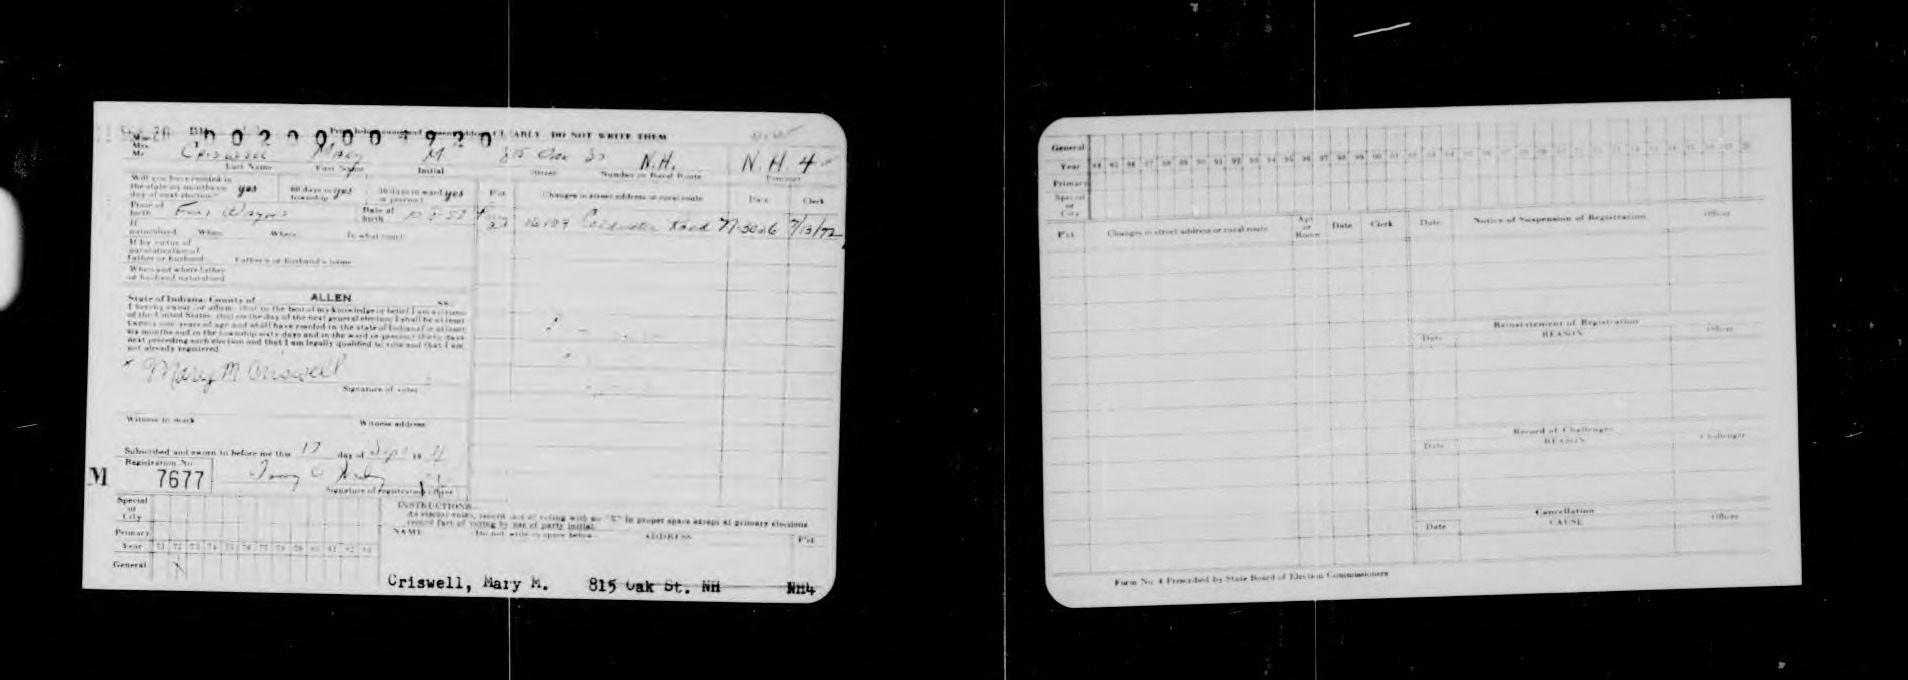 0 0 2 0 0 0 0 4 9 2 0 CLEARLY DO NOT WRITE THEM
Mrs. Criswell Mary M 815 Oak St N.H. N.H. 4
Last Name First Name Initial Street Number or Rural Route Precinct
Will you have resided in
the state six months on yes 60 days in yes 30 days in ward yes
day of next election? township or precinct
Pct Changes in street address or rural route Date Clerk
Place of birth Fort Wayne Date of birth
16109 Coldwater Road 7/13/72
If naturalized When Where In what court
If by virtue of
naturalization of
father or husband Father's or husband's name
When and where father
or husband naturalized
State of Indiana, County of ALLEN SS.
I hereby swear or affirm that to the best of my knowledge or belief I am a citizen
of the United States, that on the day of the next general election I shall be at least
twenty-one years of age and shall have resided in the state of Indiana for at least
six months and in the township sixty days and in the ward or precinct thirty days
next preceding such election and that I am legally qualified to vote and that I am
not already registered
x Mary M Criswell
Signature of voter
Witness to mark Witness address
Subscribed and sworn to before me this 17 day of Sept 19 71
Registration No.
M 7677
Signature of registration officer
Special
or
City
Primary
Year 71 72 73 74 75 76 77 78 79 80 81 82 83
General X
INSTRUCTIONS
As elector votes, record fact of voting with an "X" in proper space except at primary elections
record fact of voting by use of party initial.
NAME Do not write in space below ADDRESS Pct
Criswell, Mary M. 815 Oak St. NH NH4
General
Year 84 85 86 87 88 89 90 91 92 93 94 95 96 97 98 99 00 01 02 03 04 05 06 07 08 09 10 11 12 13 14 15 16 17 18 19 20
Primary
Special
or
City
Pct Changes in street address or rural route Apt or Room Date Clerk Date Notice of Suspension of Registration Officer
Reinstatement of Registration
Date REASON Officer
Record of Challenges
Date REASON Challenger
Cancellation
Date CAUSE Officer
Form No. 4 Prescribed by State Board of Election Commissioners